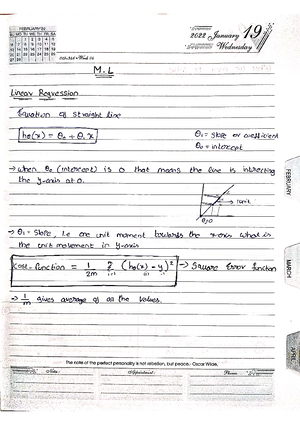 FEBRUARY'22
2022 January 19
Wednesday
M.L
Linear Regression
Equation of straight line
hθ(x) = θ₀ + θ₁x
θ₁ = slope or coefficient
θ₀ = intercept
→ when θ₀ (intercept) is 0 that means the line is intersecting
the y-axis at 0.
→ 1unit
θ₀=0
→ θ₁ = slope, i.e one unit moment towards the x-axis what is
the unit movement in y-axis
Cost-function = 1/2m Σ (hθ(x) - y)² → Square Error function
i=1
→ 1/m gives average of all the values.
FEBRUARY
MARCH
APRIL
The note of the perfect personality is not rebellion, but peace - Oscar Wilde.
Note:
Appointment:
Phone: